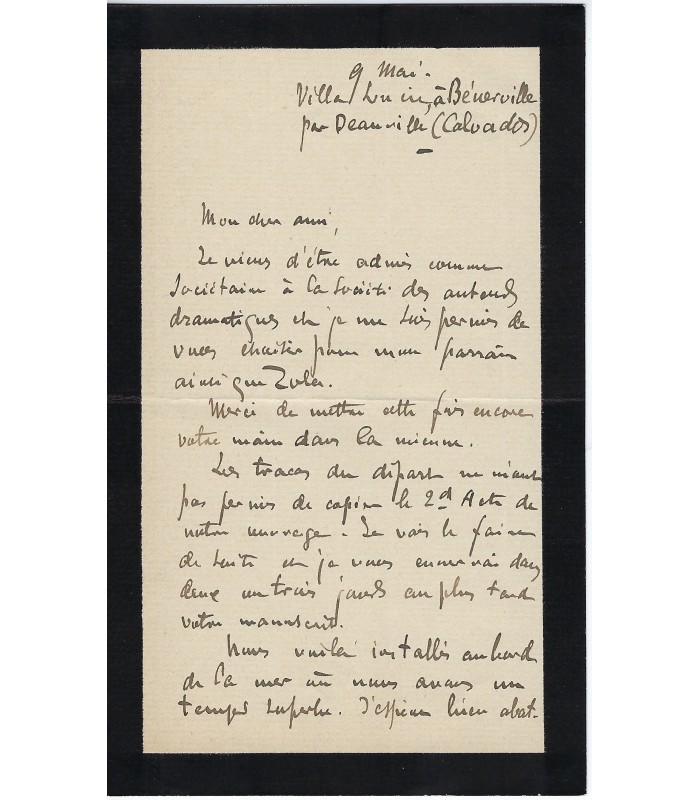 9 Mai.
Villa à Bénerville
par Deauville (Calvados)
Mon cher ami,
Je viens d'être admis comme
Sociétaire à la Société des auteurs
dramatiques et je me suis permis de
vous pour mon parrain
ainsi que Zola.
Merci de mettre cette fois encore
votre main dans la mienne.
Les tracas du départ ne m'ont
pas permis de copier le 2d Acte de
notre ouvrage. Je vais le faire
de suite et je vous enverrai dans
deux ou trois jours au plus tard
votre manuscrit.
Nous voilà installés au bord
de la mer où nous avons un
temps superbe. J'espère bien abat-